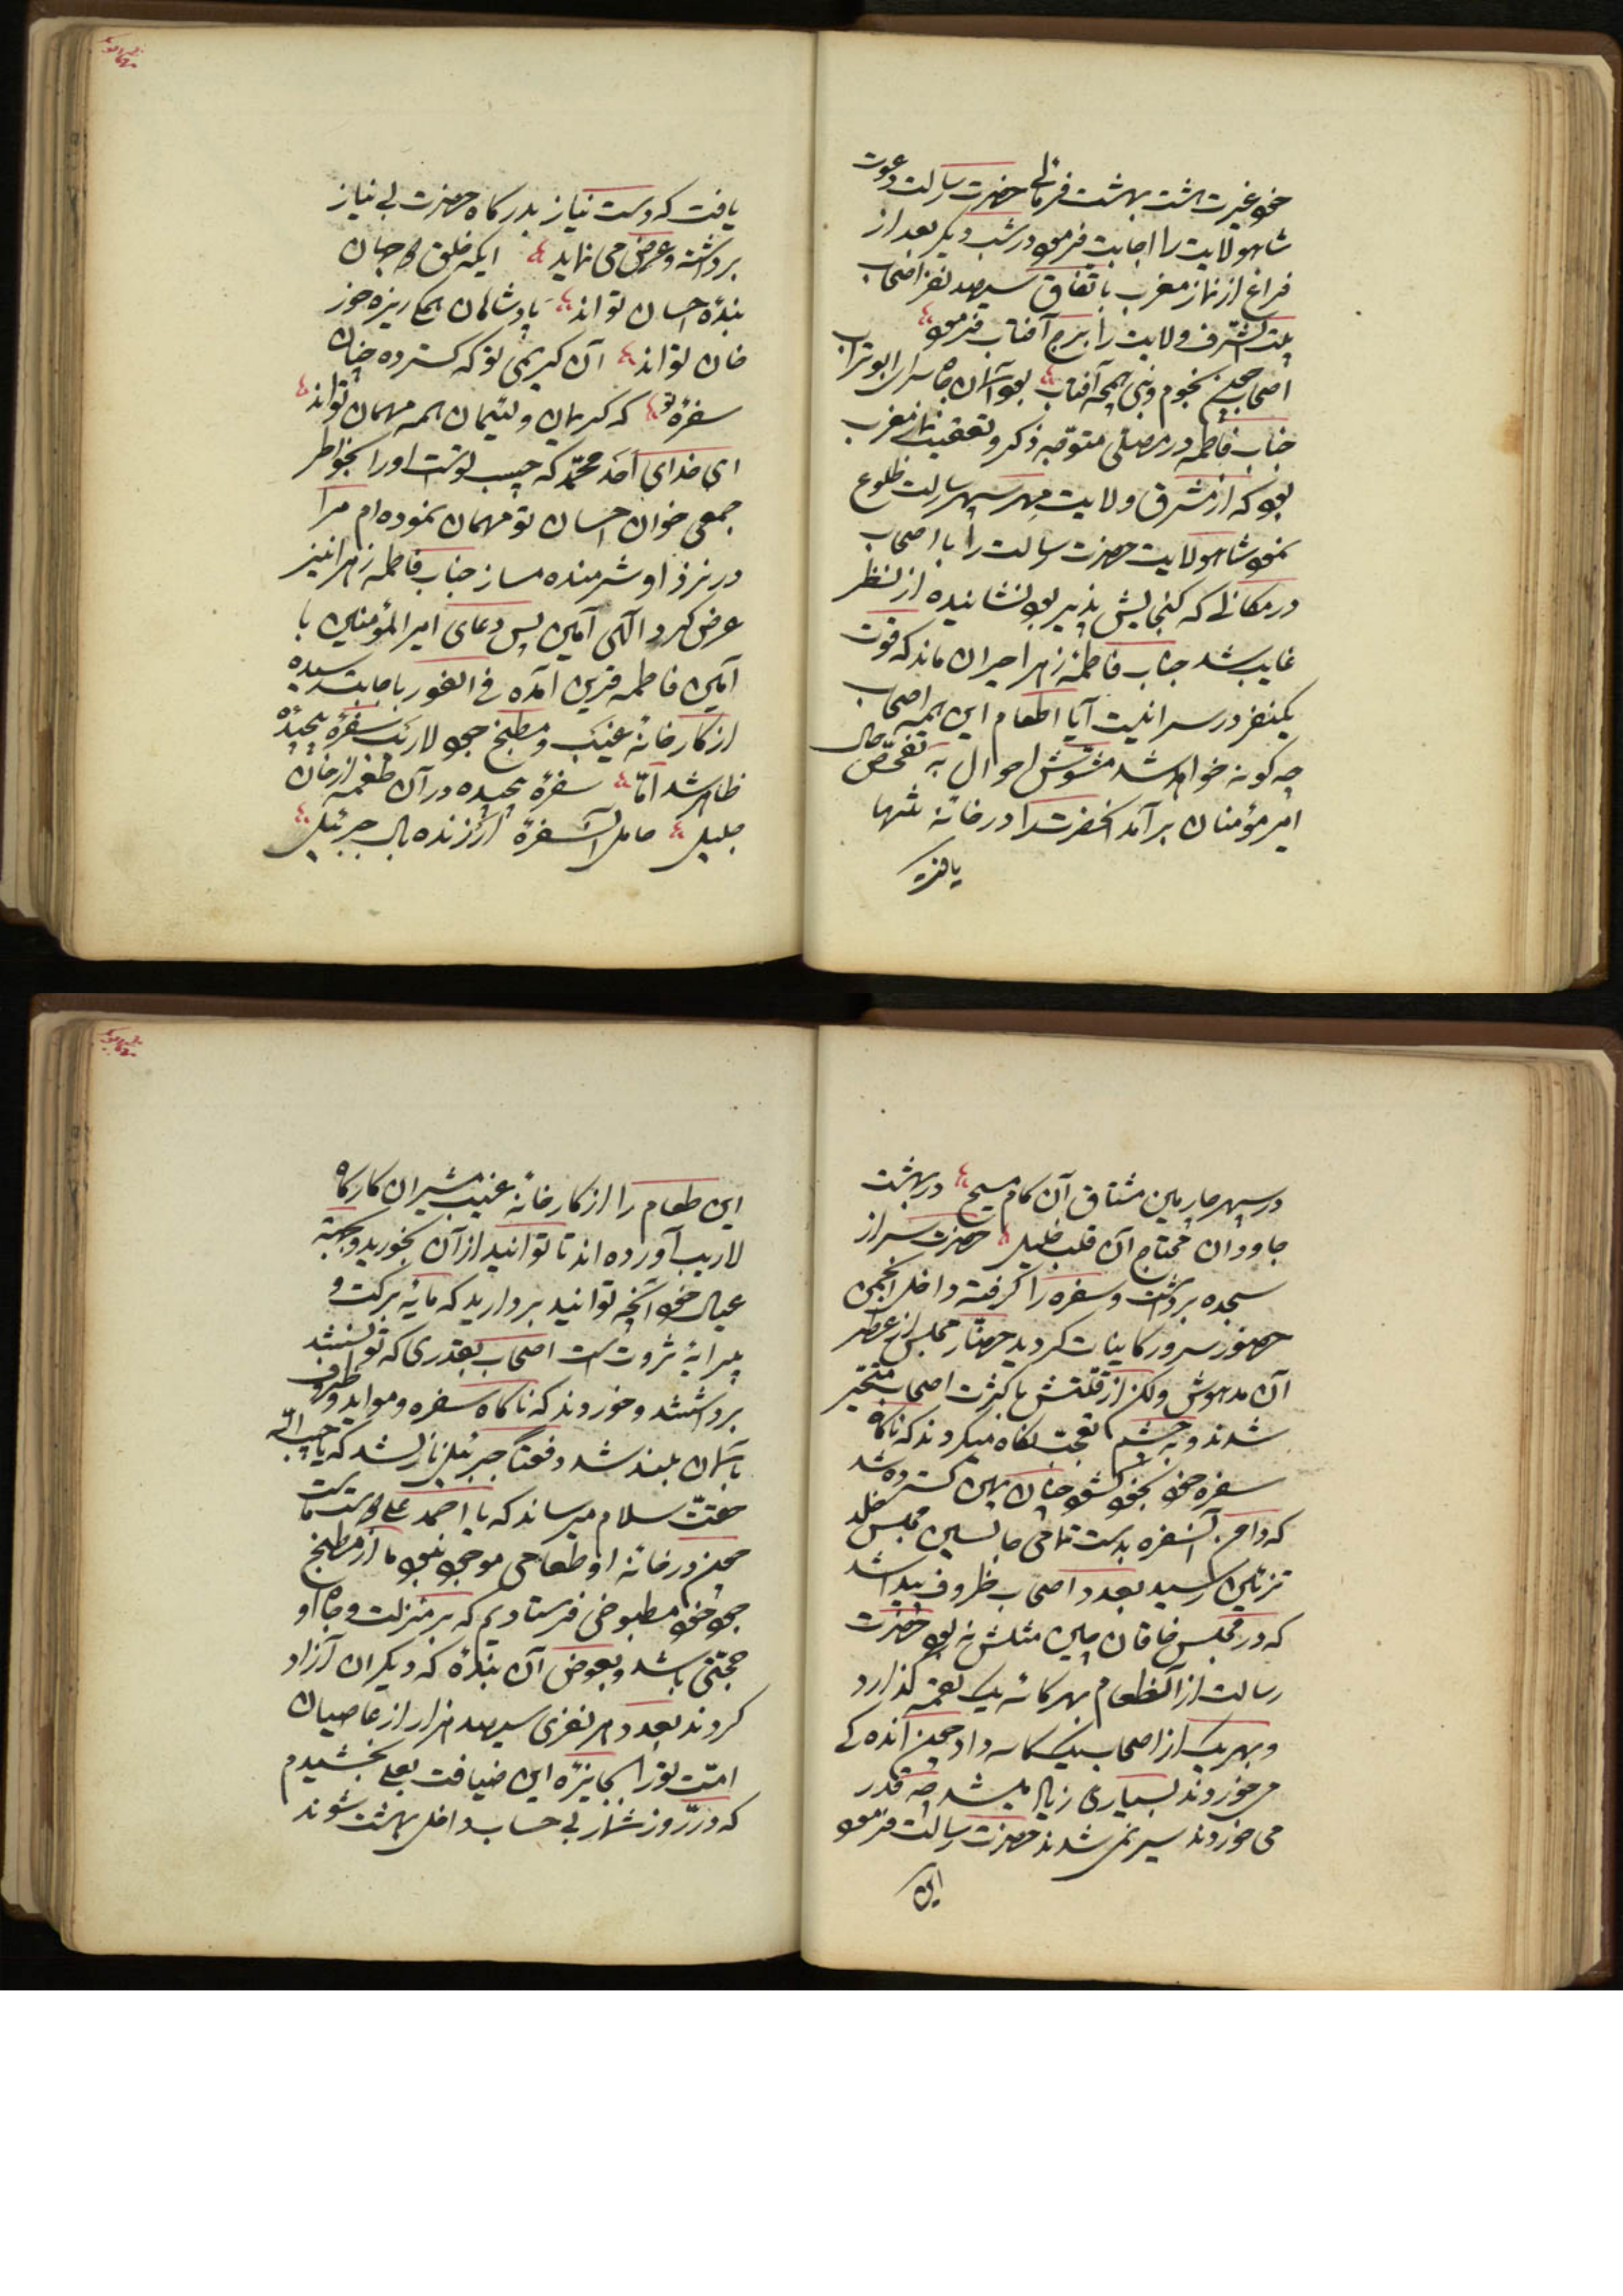 خود غیرت هشت بهشت فرمائی حضرت رسالت دعوت
شاه ولایت را اجابت فرمود در شب دیگر بعد از
فراغ از نماز مغرب باتفاق سیصد نفر اصحاب
بیت الشرف ولایت را برج آفتاب فرمود
اصحاب چون نجوم و نبی همچه آفتاب بود آسمان جاه سرای ابو تراب
جناب فاطمه در مصلی متوجه ذکر و تعقیب نماز مغرب
بود که از مشرق ولایت مهر سپهر رسالت طلوع
نمود شاه ولایت حضرت رسالت را با اصحاب
در مکانی که گنجایش پذیر بود نشانیده از نظر
غایب شد جناب فاطمه زهرا حیران ماند که قوت
یکنفر در سرا نیست آیا اطعام این همه اصحاب
چه گونه خواهد شد مشوش احوال به تفحص حال
امیر مؤمنان برآمد آنحضرت را در خانه تنها
یافت
یافت که دست نیاز بدرگاه حضرت بی نیاز
برداشته و عرض می نماید ایکه خلق دو جهان
بنده احسان تواند پادشاهان همگی ریزه خور
خان تواند آن کریمی تو که گسترده چنان
سفرهٔ تو که کریمان و لئیمان همه مهمان تواند
ای خدای احد محمد که حبیب توست او را بخواطر
جمعی خوان احسان تو مهمان نموده ام مرا
در نزد او شرمنده مساز جناب فاطمه زهرا نیز
عرض کرد الهی آمین پس دعای امیر المؤمنین با
آمین فاطمه قرین آمده فی الفور باجابت رسیده
از کارخانهٔ غیب و مطبخ جود لاریب سفرهٔ پیچیده
ظاهر شد اما سفرهٔ پیچیده در آن طعمه از خان
جلیل حامل آن سفره ارزنده بال جبرئیل
در سپهر چارمین مشتاق آن کام مسیح در بهشت
جاودان محتاج آن قلب خلیل حضرت سر از
سجده برداشت و سفره را گرفته داخل انجمن
حضور سرور کاینات گردید حضار مجلس از عطر
آن مدهوش ولکن از قلتش با کثرت اصحاب متحیر
شدند و به چشم تعجب نگاه میکردند که ناگاه
سفره خود بخود گشود چنان پهن گسترده شد
که دامن آنسفره بدست تمامی جالسین مجلس خلد
تزئین رسید بعدد اصحاب ظروف پیدا شد
که در مجلس خاقان چین مثلش نه بود حضرت
رسالت از آنطعام بهر کاسه یک لقمه گذارد
و بهر یک از اصحاب یک کاسه داد چون اندکی
می خوردند بسیاری زیاد میشد چه قدر
می خوردند سیر نمی شدند حضرت رسالت فرمود
این
این طعام را از کارخانهٔ غیب مشیران کارگاه
لاریب آورده اند تا توانید از آن بخورید و بجهة
عیال خود آنچه توانید بردارید که مایهٔ برکت و
پیرایهٔ ثروت است اصحاب بقدری که توانستند
برداشتند و خوردند که ناگاه سفره و مواید و ظروف
باسمان بلند شد دفعتاً جبرئیل نازل شد که یا حبیب الله
حقت سلام میرساند که یا احمد علی دوست ماست
چون در خانهٔ او طعامی موجود نبود ما از مطبخ
جود خود مطبوخی فرستادیم که بر منزلت و جاه او
حجتی باشد و بعوض آن بنده که دیگران آزاد
کردند بعدد هر نفری سیصد هزار از عاصیان
امت تو را بجایزهٔ این ضیافت بعلی بخشیدم
که در روز شمار بی حساب داخل بهشت شوند